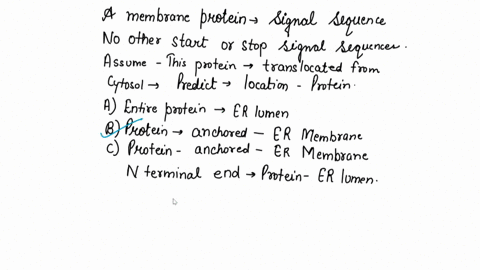 A membrane protein → Signal sequence
No other start or stop signal sequences.
Assume - This protein → translocated from
Cytosol → Predict → location - Protein.
A) Entire protein → ER lumen
B) Protein → anchored - ER Membrane
C) Protein - anchored - ER Membrane
N terminal end → Protein - ER lumen.